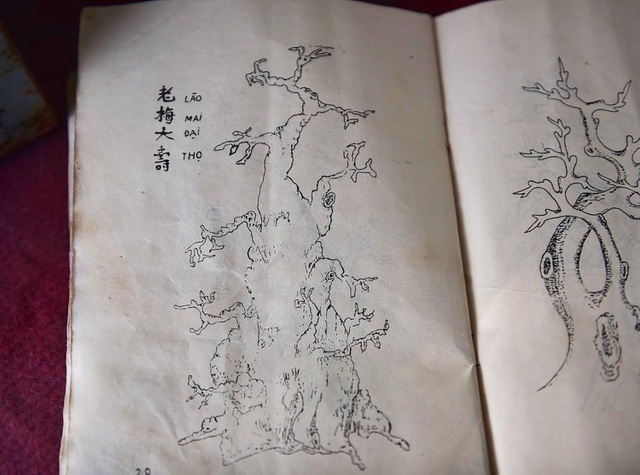 老梅大壽
LÃO
MAI
ĐẠI
THỌ
29